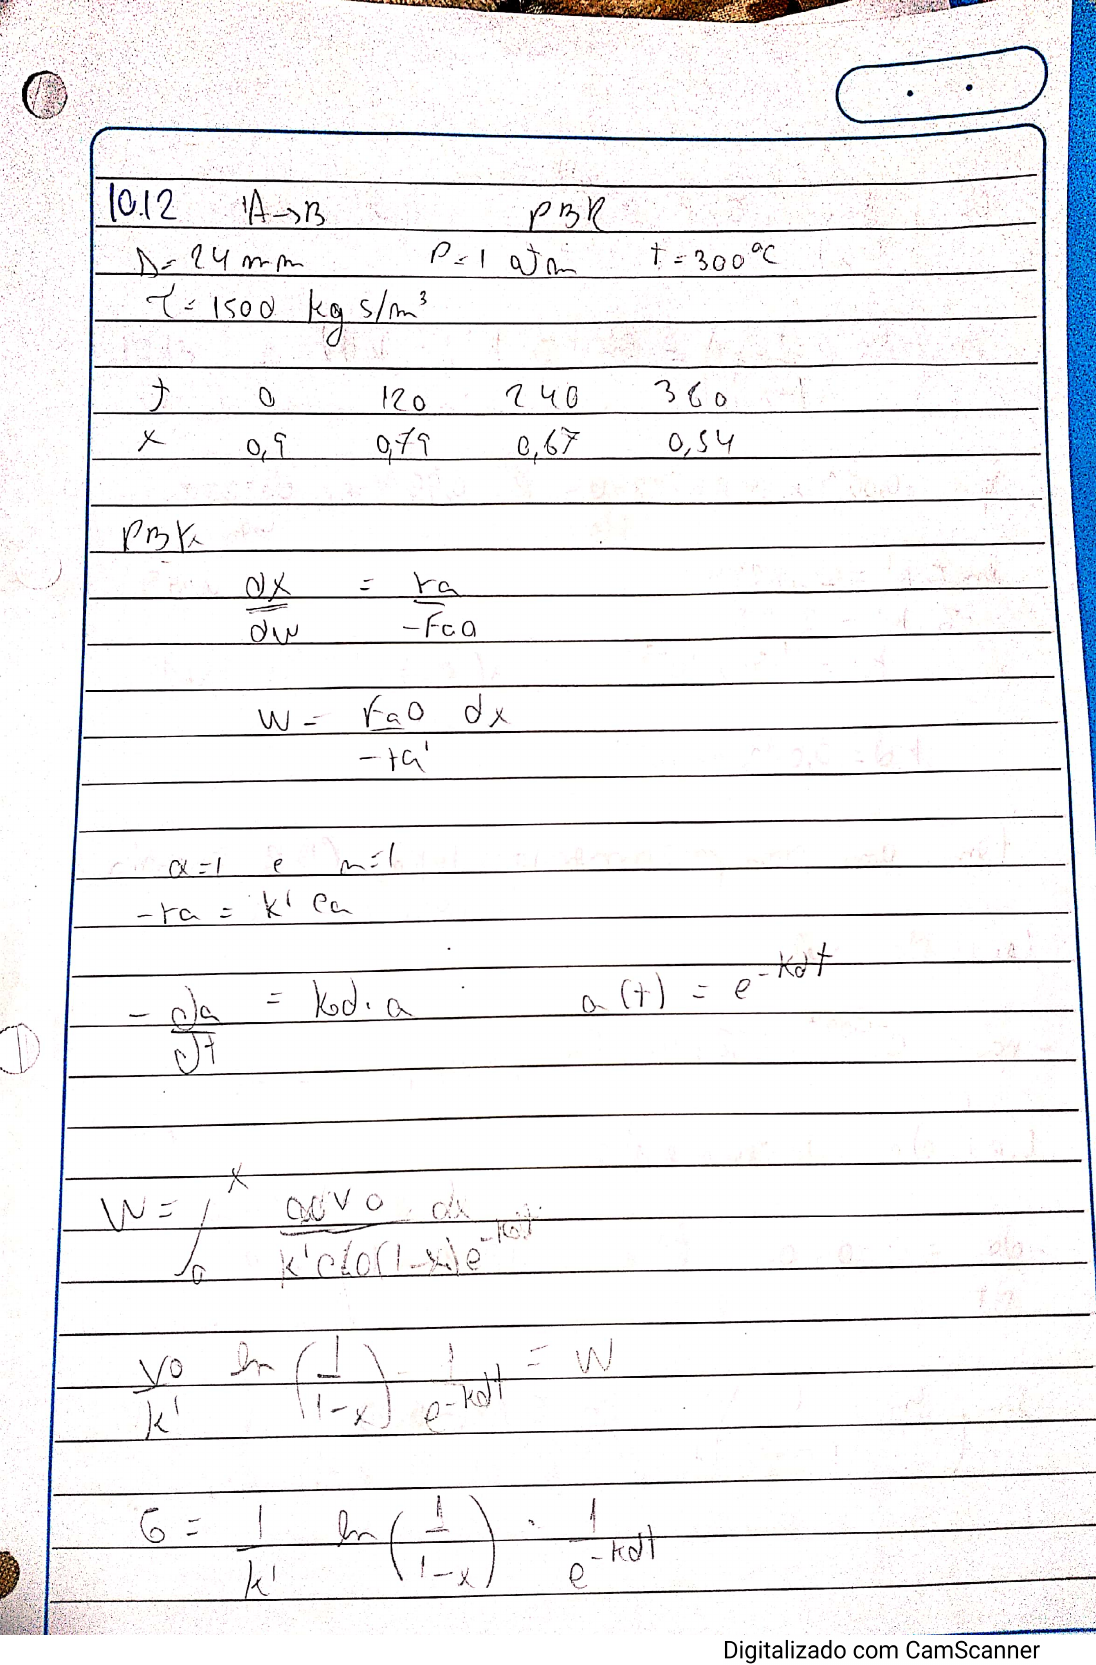 10.12 1A→B PBR
D= 24 mm P=1 atm t=300°C
τ= 1500 kg s/m³
t 0 120 240 360
x 0,9 0,79 0,67 0,54
PBR
dx = ra
dw -Fa0
W = Fa0 dx
-ra'
α=1 e n=1
-ra = k' Ca
- da = kd. a a(t) = e^-kdt
dt
x
W= ∫ v0 dx
0 k' (1-x) e^-kdt
v0 ln (1) . 1 = W
k' 1-x e^-kdt
6 = 1 ln (1) . 1
k' 1-x e^-kdt
Digitalizado com CamScanner